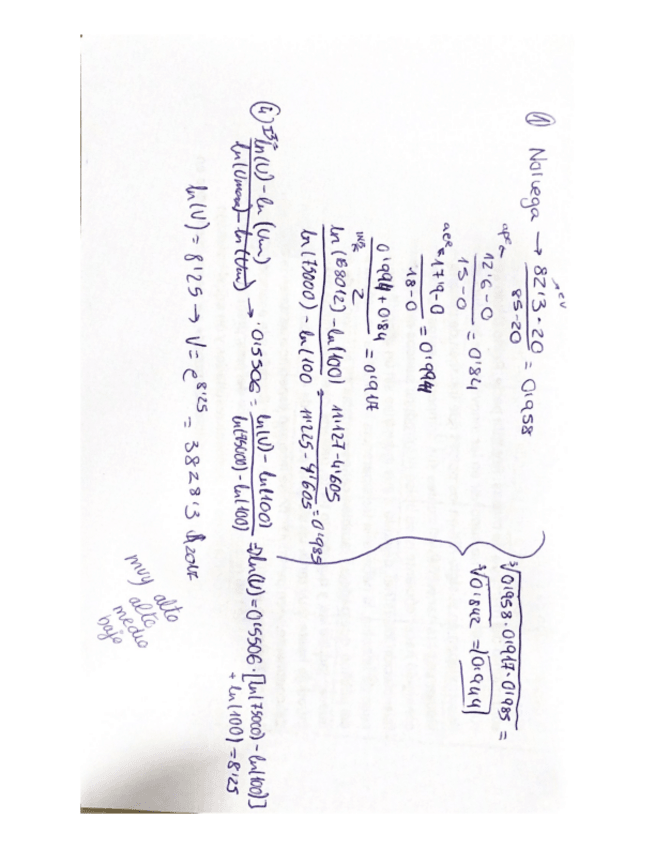 ① Noruega → 82'3 - 20 / 85 - 20 = 0'958
ev
ape ← 12'6 - 0 / 15 - 0 = 0'84
aee ← 17'9 - 0 / 18 - 0 = 0'994
0'994 + 0'84 / 2 = 0'917
ln(68012) - ln(100) / ln(75000) - ln(100 = 11'127 - 4'605 / 11'225 - 4'605 = 0'985
∛0'958 · 0'917 · 0'985 =
∛0'842 = 0'944
④ ln(V) - ln(Vm) / ln(Vmax) - ln(Vm) → 0'5506 = ln(V) - ln(100) / ln(75000) - ln(100) => ln(V) = 0'5506 · [ln(75000) - ln(100)]
+ ln(100) = 8'25
ln(V) = 8'25 → V = e^8'25 = 3828'3
muy alto
alto
medio
bajo